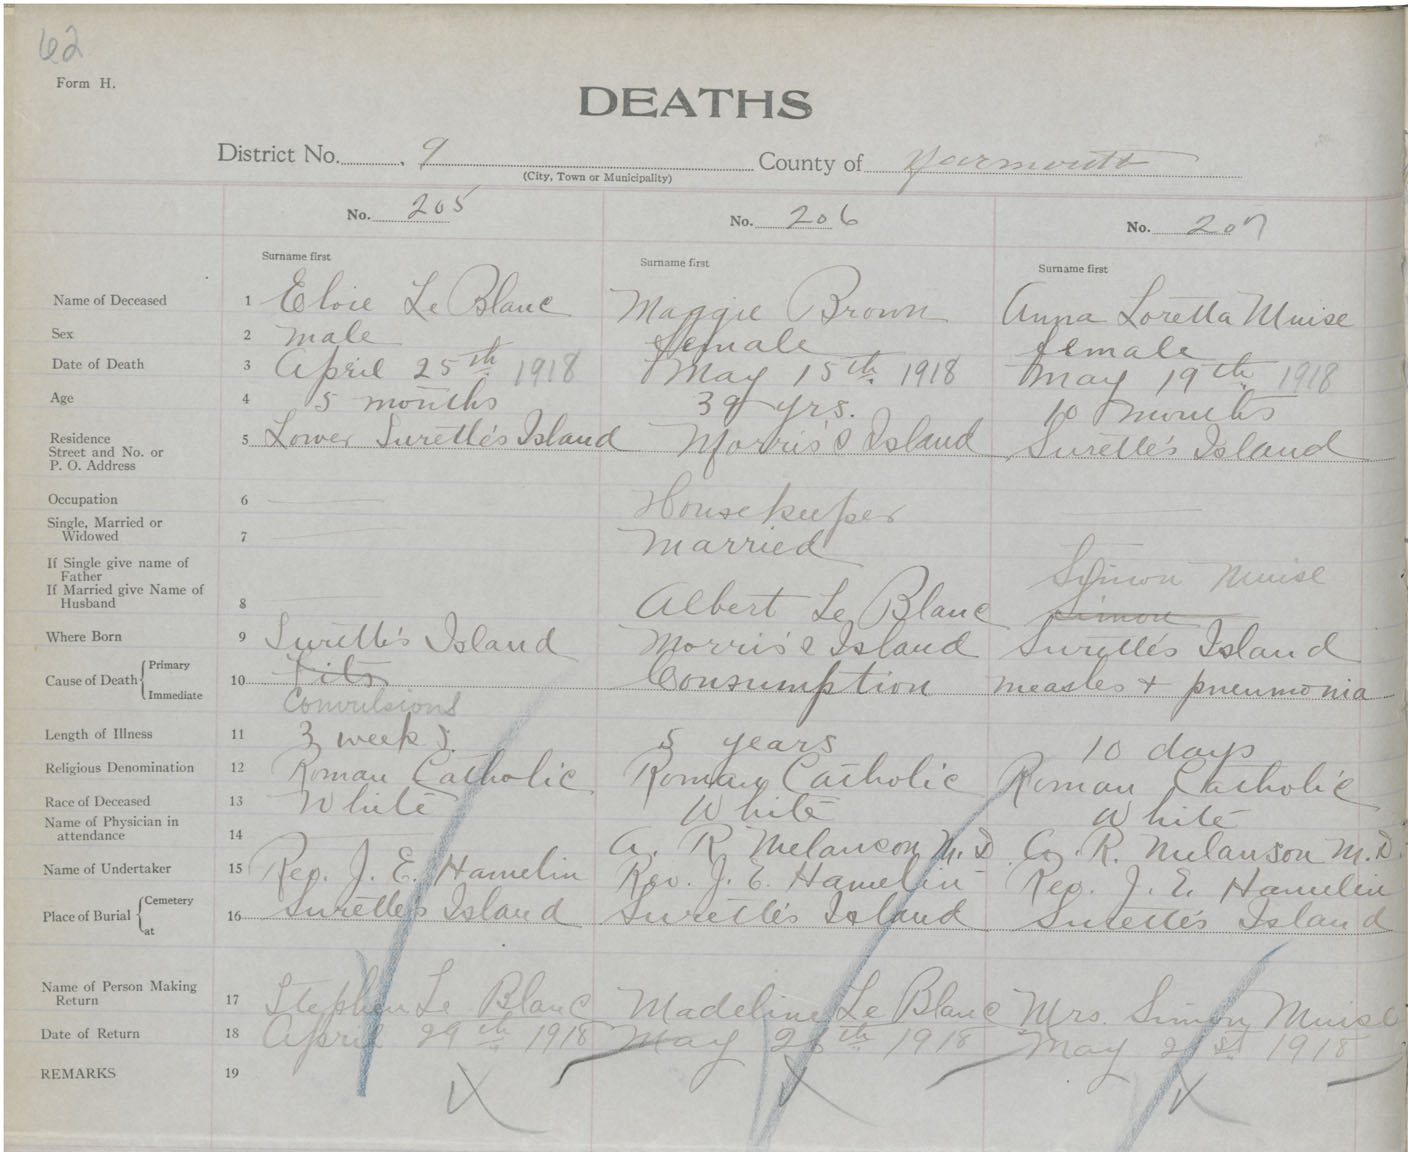 62
Form H.
DEATHS
District No. 9 County of Yarmouth
(City, Town or Municipality)
No. 205 No. 206 No. 207
Surname first Surname first Surname first
Name of Deceased 1 Elvie Le Blanc Maggie Brown Anna Loretta Muise
Sex 2 male female female
Date of Death 3 April 25th 1918 May 15th 1918 May 19th 1918
Age 4 5 months 39 yrs. 10 months
Residence Street and No. or P. O. Address 5 Lower Surette's Island Morris's Island Surette's Island
Occupation 6 Housekeeper
Single, Married or Widowed 7 Married
If Single give name of Father
If Married give Name of Husband 8 Albert Le Blanc Simon Muise Simon
Where Born 9 Surette's Island Morris's Island Surette's Island
Cause of Death { Primary Immediate 10 Fits Convulsions Consumption measles + pneumonia
Length of Illness 11 3 weeks. 5 years 10 days
Religious Denomination 12 Roman Catholic Roman Catholic Roman Catholic
Race of Deceased 13 White White White
Name of Physician in attendance 14 A. R. Melancon M.D A. R. Melanson M.D.
Name of Undertaker 15 Rev. J. E. Hamelin Rev. J. E. Hamelin Rev. J. E. Hamelin
Place of Burial { Cemetery at 16 Surette's Island Surette's Island Surette's Island
Name of Person Making Return 17 Stephen Le Blanc Madeline Le Blanc Mrs. Simon Muise
Date of Return 18 April 29th 1918 May 1918 May 21st 1918
REMARKS 19